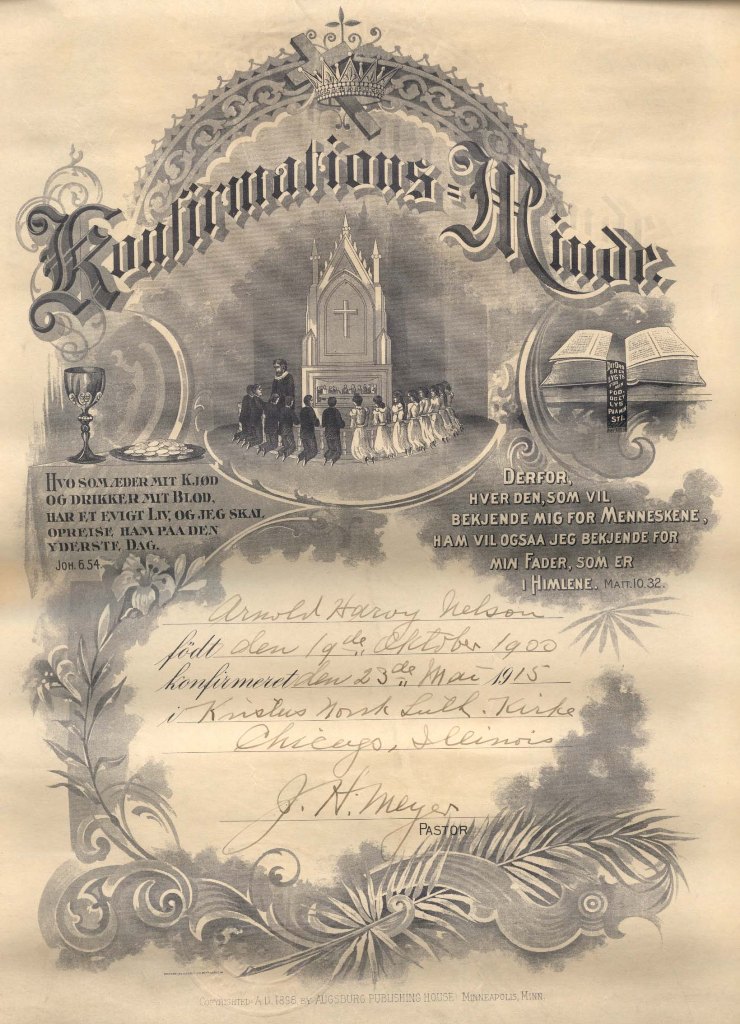 Konfirmations=Minde.
HVO SOM ÆDER MIT KJØD
OG DRIKKER MIT BLOD,
HAR ET EVIGT LIV, OG JEG SKAL
OPREISE HAM PAA DEN
YDERSTE DAG.
JOH. 6.54.
DERFOR,
HVER DEN, SOM VIL
BEKJENDE MIG FOR MENNESKENE,
HAM VIL OGSAA JEG BEKJENDE FOR
MIN FADER, SOM ER
I HIMLENE. MATT. 10.32.
Arnold Harvy Nelson
født den 19de Oktober 1900
konfirmeret den 23de Mai 1915
i Kristus Norsk Luth. Kirke
Chicago, Illinois
J. H. Meyer
PASTOR
COPYRIGHTED A.D. 1896 BY AUGSBURG PUBLISHING HOUSE MINNEAPOLIS, MINN.